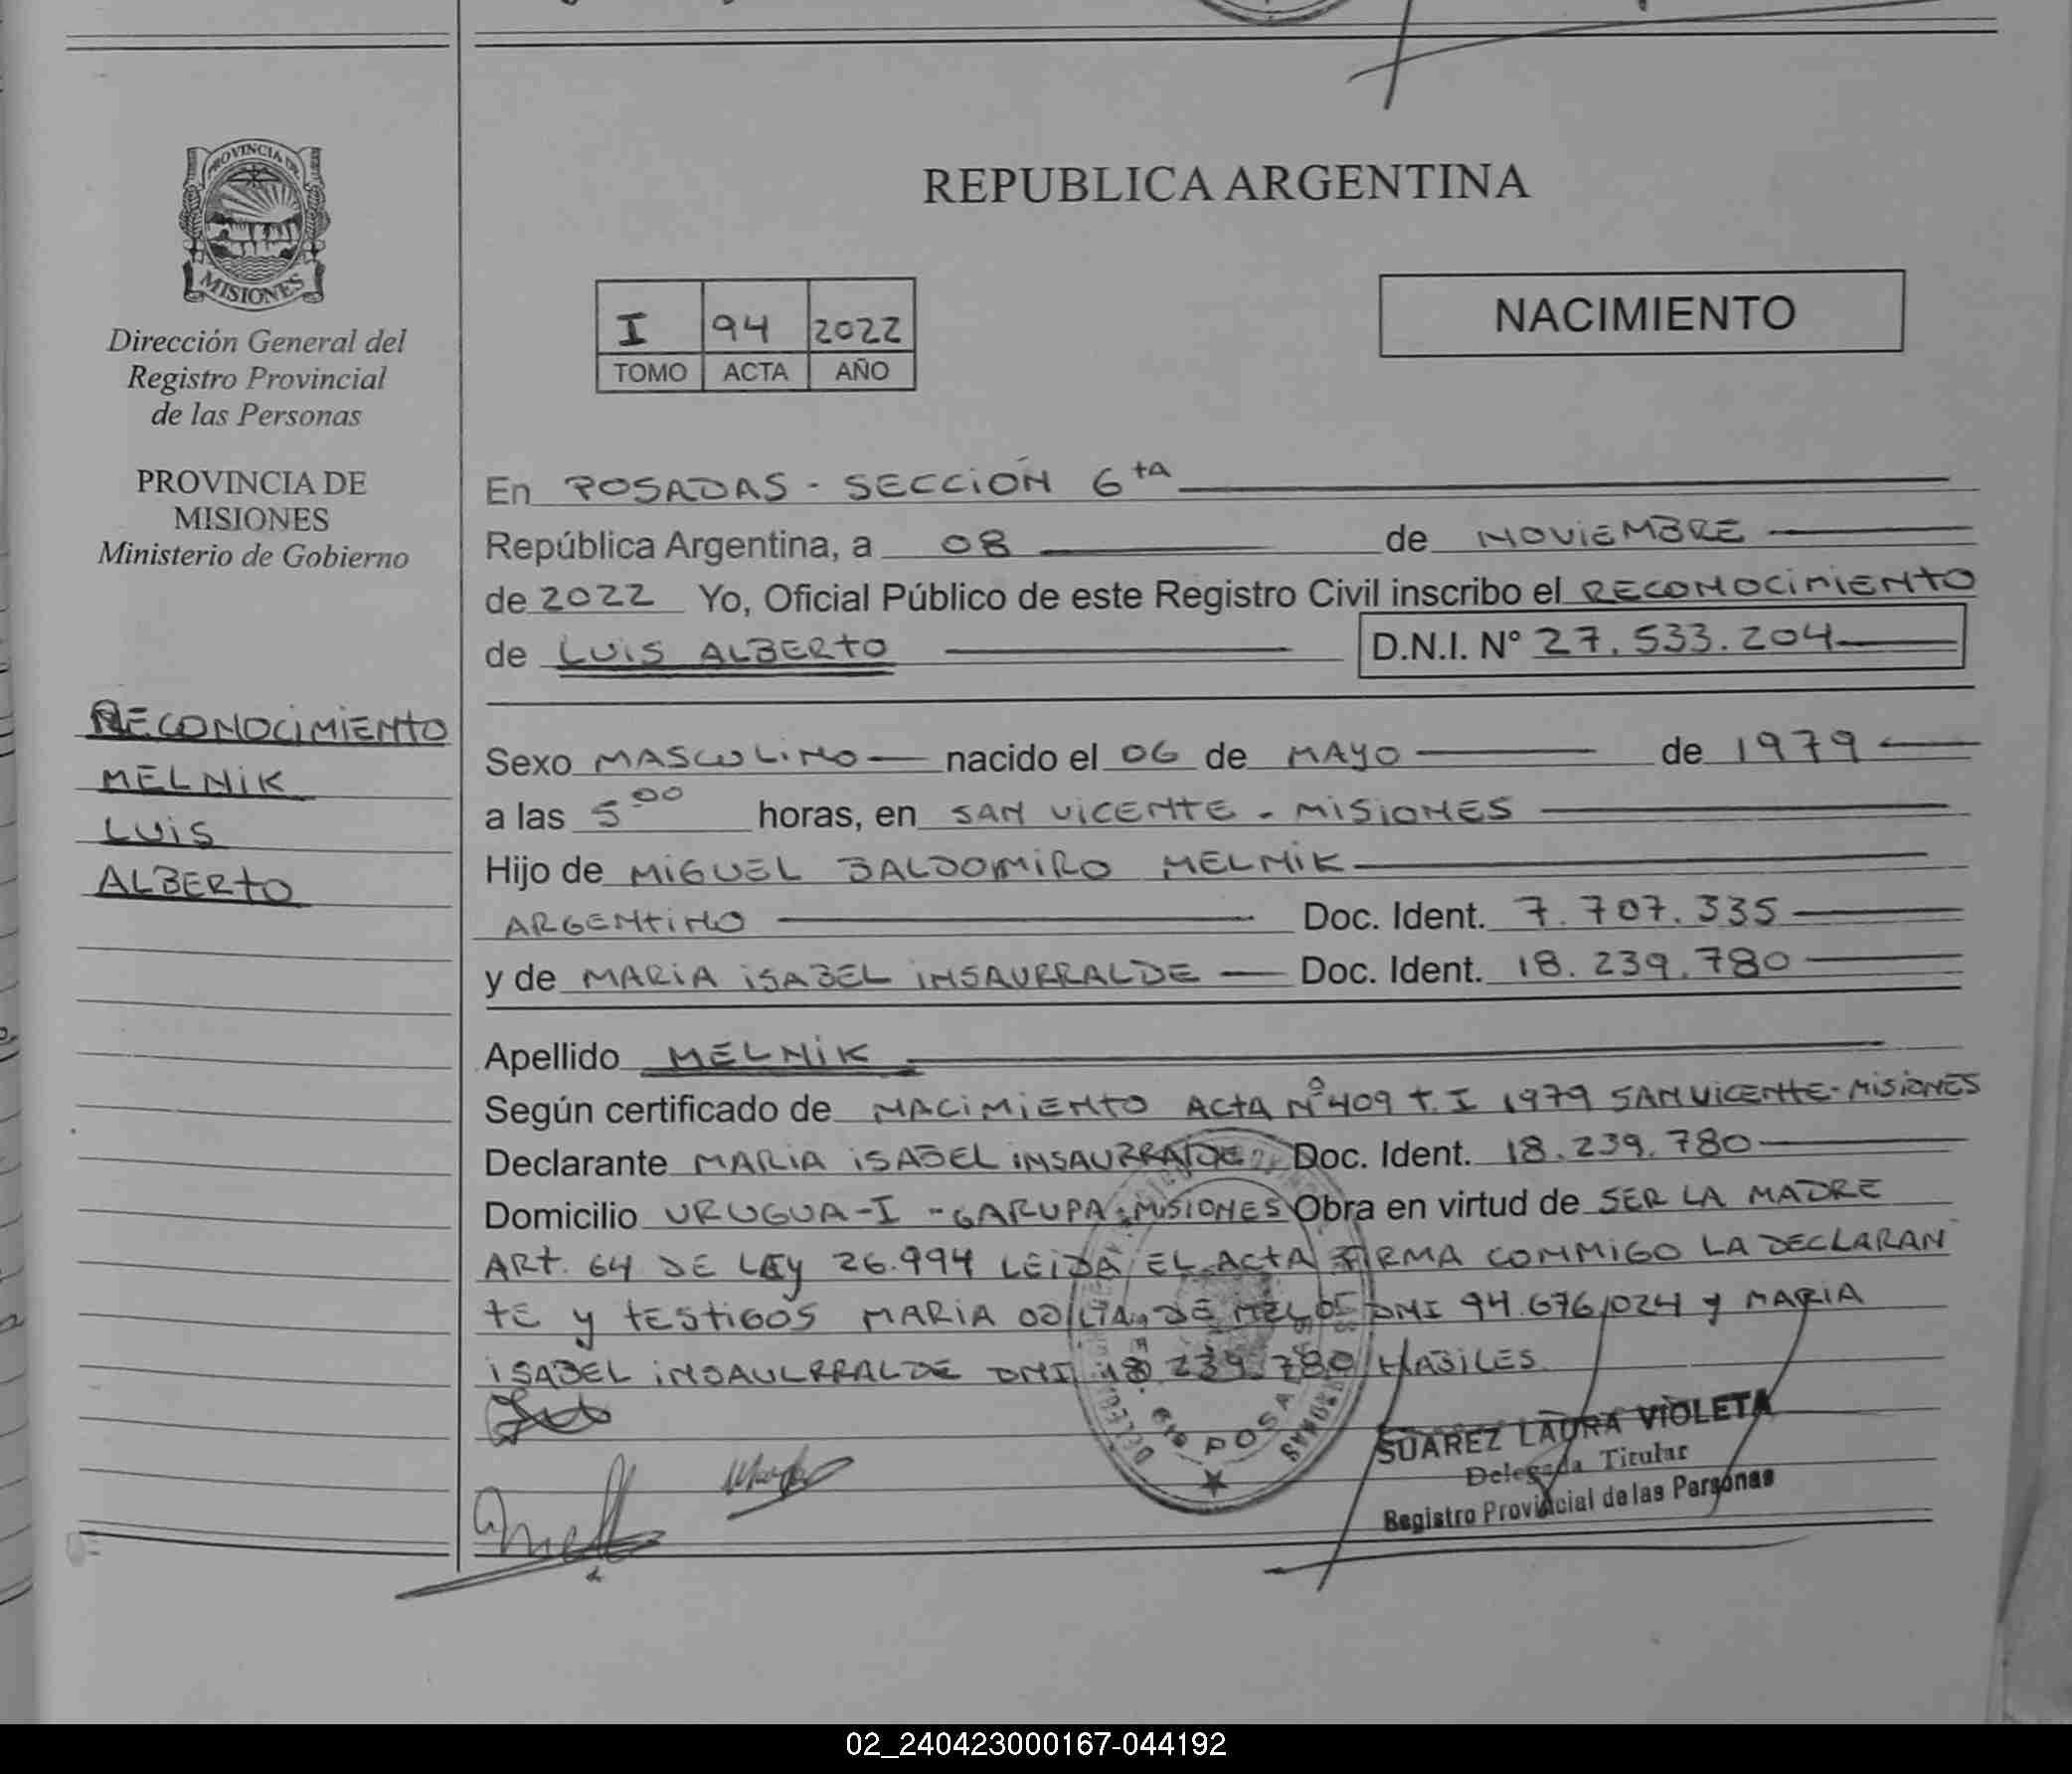 PROVINCIA DE
MISIONES
Dirección General del
Registro Provincial
de las Personas
PROVINCIA DE
MISIONES
Ministerio de Gobierno
RECONOCIMIENTO
MELNIK
LUIS
ALBERTO
REPUBLICA ARGENTINA
I 94 2022
TOMO ACTA AÑO
NACIMIENTO
En POSADAS - SECCIÓN 6ta
República Argentina, a 08 de NOVIEMBRE
de 2022 Yo, Oficial Público de este Registro Civil inscribo el RECONOCIMIENTO
de LUIS ALBERTO D.N.I. N° 27.533.204
Sexo MASCULINO nacido el 06 de MAYO de 1979
a las 5 00 horas, en SAN VICENTE - MISIONES
Hijo de MIGUEL BALDOMIRO MELNIK
ARGENTINO Doc. Ident. 7.707.335
y de MARIA ISABEL INSAURRALDE Doc. Ident. 18.239.780
Apellido MELNIK
Según certificado de NACIMIENTO ACTA N°409 T. I 1979 SAN VICENTE-MISIONES
Declarante MARIA ISABEL INSAURRALDE Doc. Ident. 18.239.780
Domicilio URUGUA-I - GARUPA-MISIONES Obra en virtud de SER LA MADRE
ART. 64 DE LEY 26.994 LEIDA EL ACTA FIRMA CONMIGO LA DECLARAN
TE y TESTIGOS MARIA DE DNI 94.676.024 y MARIA
ISABEL DNI 18.239.780 HABILES
POSADAS
SUAREZ LAURA VIOLETA
Delegada Titular
Registro Provincial de las Personas
02_240423000167-044192